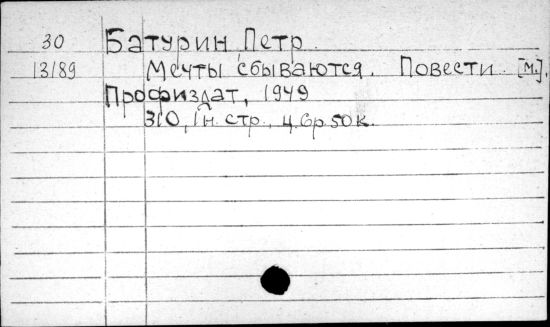 30 Батурин Петр
13189 Мечты сбываются. Повести. [М.],
Профиздат, 1949
310, 1 н. стр., ц. 6р. 50к.